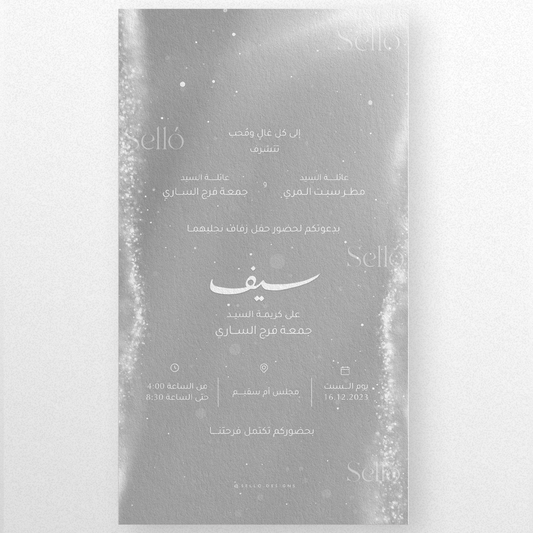 Selló
إلى كل غالٍ ومُحب
نتشرف
Selló
عائلـة السيد
مطـر سيـت الـمري
و
عائلـة السيد
جمعـة فرج الســاري
بدعوتكم لحضور حفل زفاف نجليهمـا
Selló
سيف
على كريمـة السيـد
جمعـة فرج الســاري
يوم الــسبت
16.12.2023
مجلس أم سقيــم
من الساعة 4:00
حتى الساعة 8:30
بحضوركم تكتمل فرحتنــا
Selló
SELLO DESIGNS